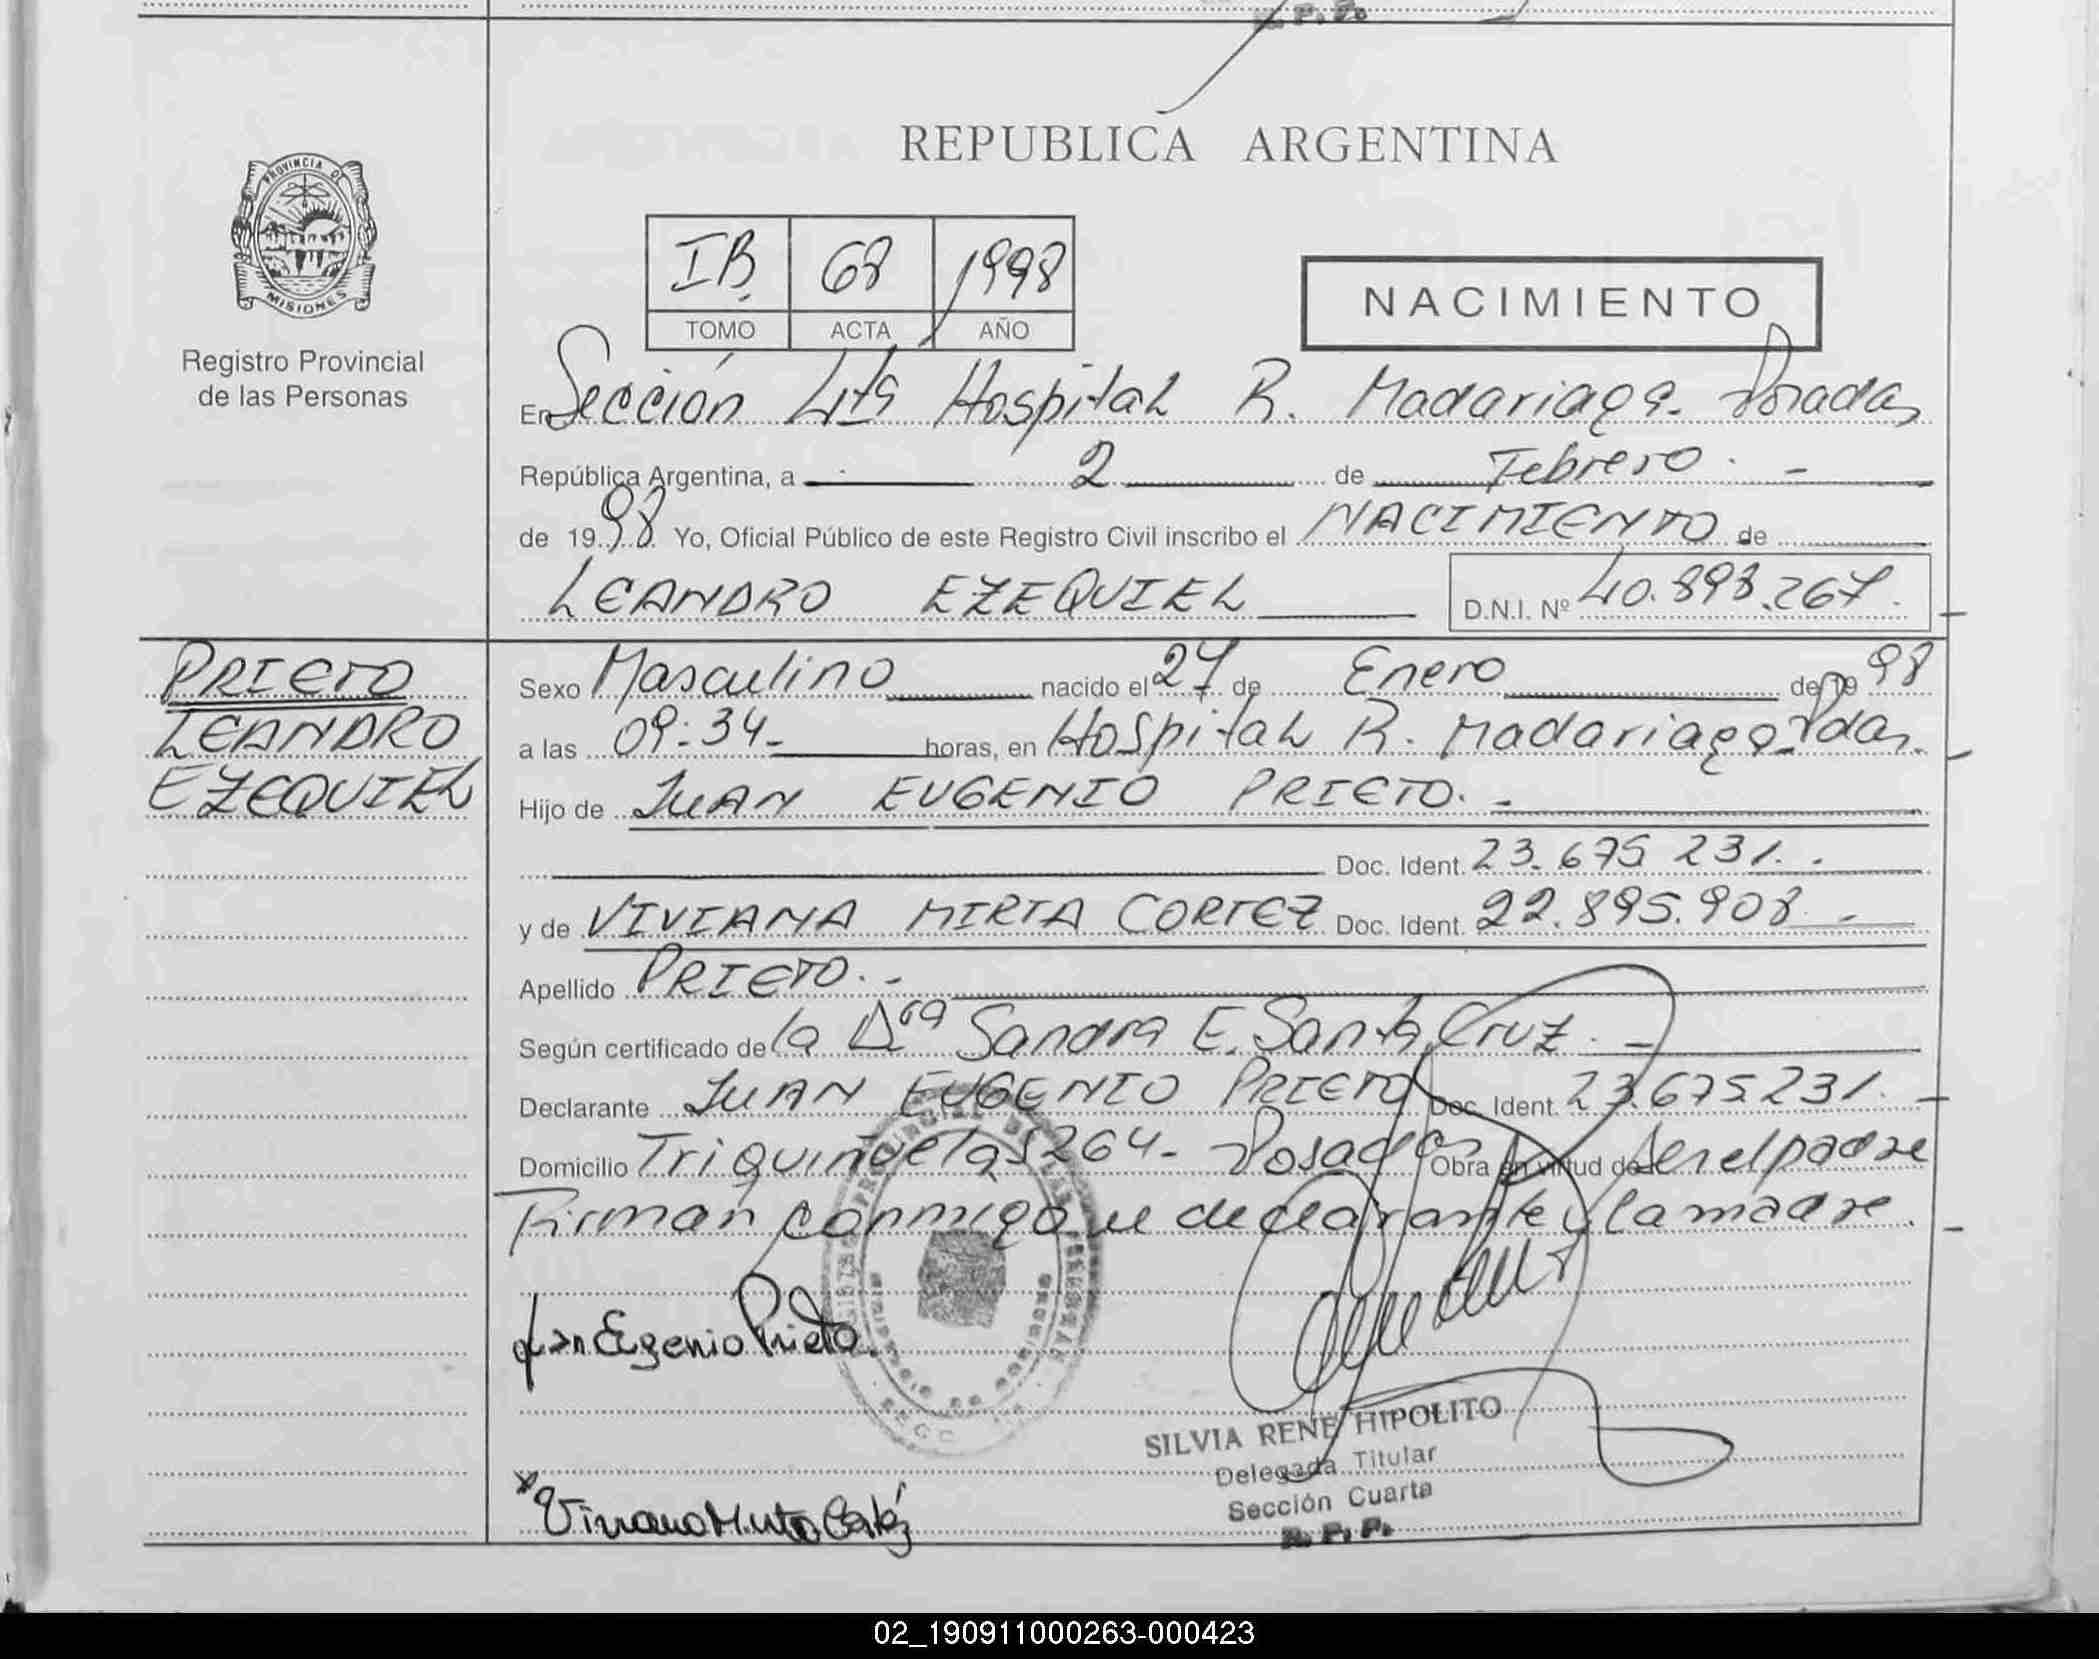 R. P. P.
REPUBLICA ARGENTINA
PROVINCIA DE
MISIONES
Registro Provincial
de las Personas
IB. 68 1998
TOMO ACTA AÑO
NACIMIENTO
En Sección 4ta Hospital R. Madariaga. Posadas
República Argentina, a 2 de Febrero. -
de 1998 Yo, Oficial Público de este Registro Civil inscribo el NACIMIENTO de
LEANDRO EZEQUIEL D.N.I. Nº 40.898.267.
PRIETO
LEANDRO
EZEQUIEL
Sexo Masculino nacido el 27 de Enero de 19 98
a las 09:34- horas, en Hospital R. Madariaga. Pdas.
Hijo de JUAN EUGENIO PRIETO. -
Doc. Ident. 23.675 231. .
y de VIVIANA MIRTA CORTEZ Doc. Ident. 22.895.908. -
Apellido PRIETO. -
Según certificado de la Dra Sandra E. Santa Cruz. -
Declarante JUAN EUGENIO PRIETO Doc. Ident. 23.675231. -
Domicilio Triquiñuelas 264- Posadas Obra en virtud de Ser el padre
Firman conmigo el declarante y la madre. -
Juan Eugenio Prieto.
SILVIA RENE HIPOLITO
Delegada Titular
Sección Cuarta
R. P. P.
x Viviana Mirta Cortéz
02_190911000263-000423